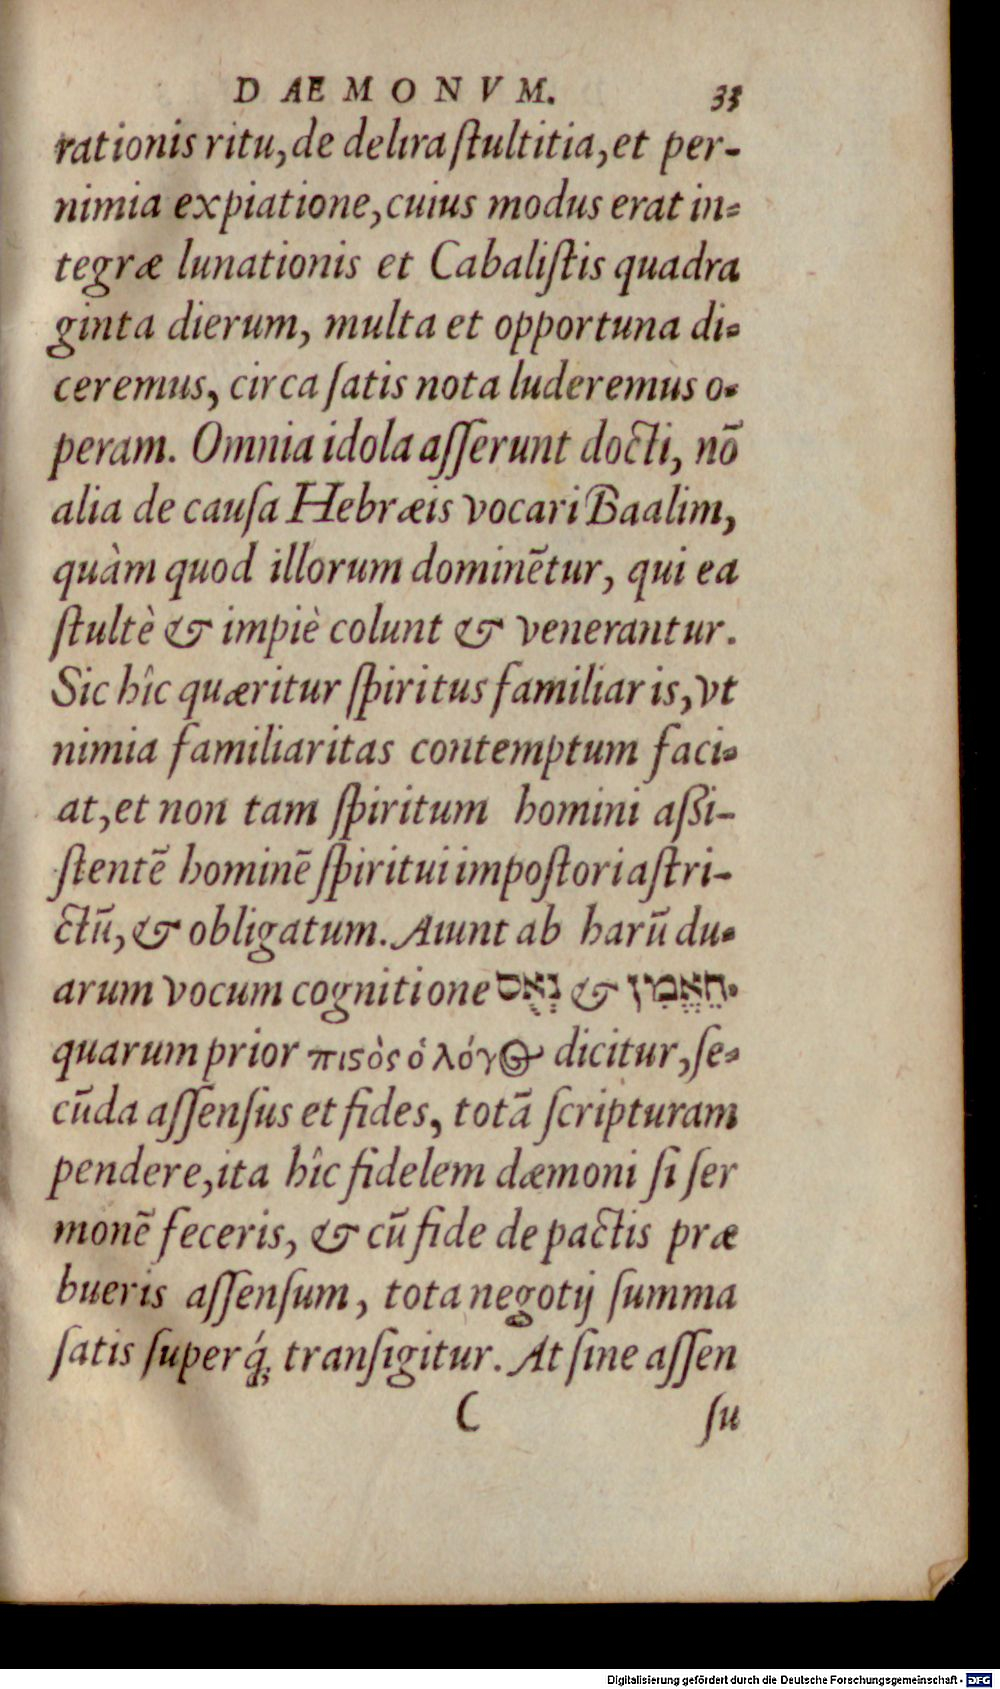 DAEMONVM. 33
rationis ritu, de delira ſtultitia, et per-
nimia expiatione, cuius modus erat in-
tegræ lunationis et Cabaliſtis quadra
ginta dierum, multa et opportuna di-
ceremus, circa ſatis nota luderemus o-
peram. Omnia idola aſſerunt docti, nō
alia de cauſa Hebræis vocari Baalim,
quàm quod illorum dominētur, qui ea
ſtultè & impiè colunt & venerantur.
Sic hîc quæritur ſpiritus familiaris, vt
nimia familiaritas contemptum faci-
at, et non tam ſpiritum homini aßi-
ſtentē hominē ſpiritui impoſtori aſtri-
ctū, & obligatum. Aiunt ab harū du-
arum vocum cognitione & 
quarum prior πιϛὸς ὁ λόγος dicitur, ſe-
cūda aſſenſus et fides, totā ſcripturam
pendere, ita hîc fidelem dæmoni ſi ſer
monē feceris, & cū fide de pactis præ
bueris aſſenſum, tota negotij ſumma
ſatis ſuperq́; tranſigitur. At ſine aſſen
C ſu
Digitalisierung gefördert durch die Deutsche Forschungsgemeinschaft - DFG